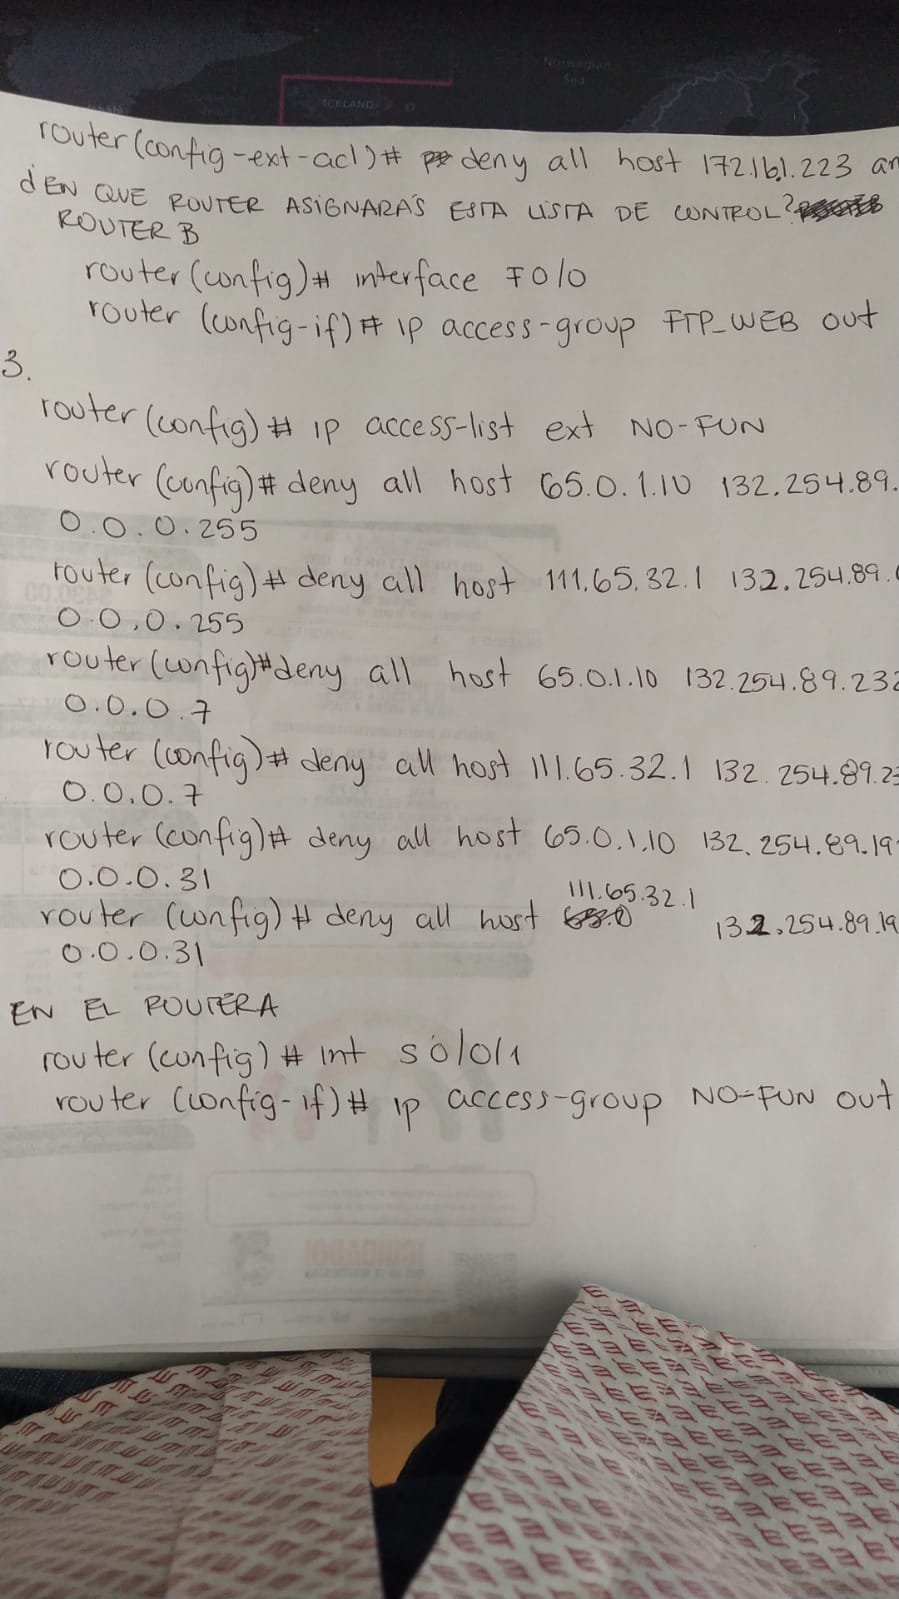 Norwegian
Sea
ICELAND
router (config-ext-acl)# deny all host 172.16.1.223 an
¿EN QUE ROUTER ASIGNARAS ESTA LISTA DE CONTROL?
ROUTER B
router (config)# interface F0/0
router (config-if)# ip access-group FTP_WEB out
3.
router (config)# ip access-list ext NO-FUN
router (config)# deny all host 65.0.1.10 132.254.89.
0.0.0.255
router (config)# deny all host 111.65.32.1 132.254.89.
0.0.0.255
router (config)#deny all host 65.0.1.10 132.254.89.232
0.0.0.7
router (config)# deny all host 111.65.32.1 132.254.89.23
0.0.0.7
router (config)# deny all host 65.0.1.10 132.254.89.19
0.0.0.31
router (config)# deny all host 111.65.32.1 132.254.89.19
0.0.0.31
EN EL ROUTER A
router (config)# int s0/0/1
router (config-if)# ip access-group NO-FUN out